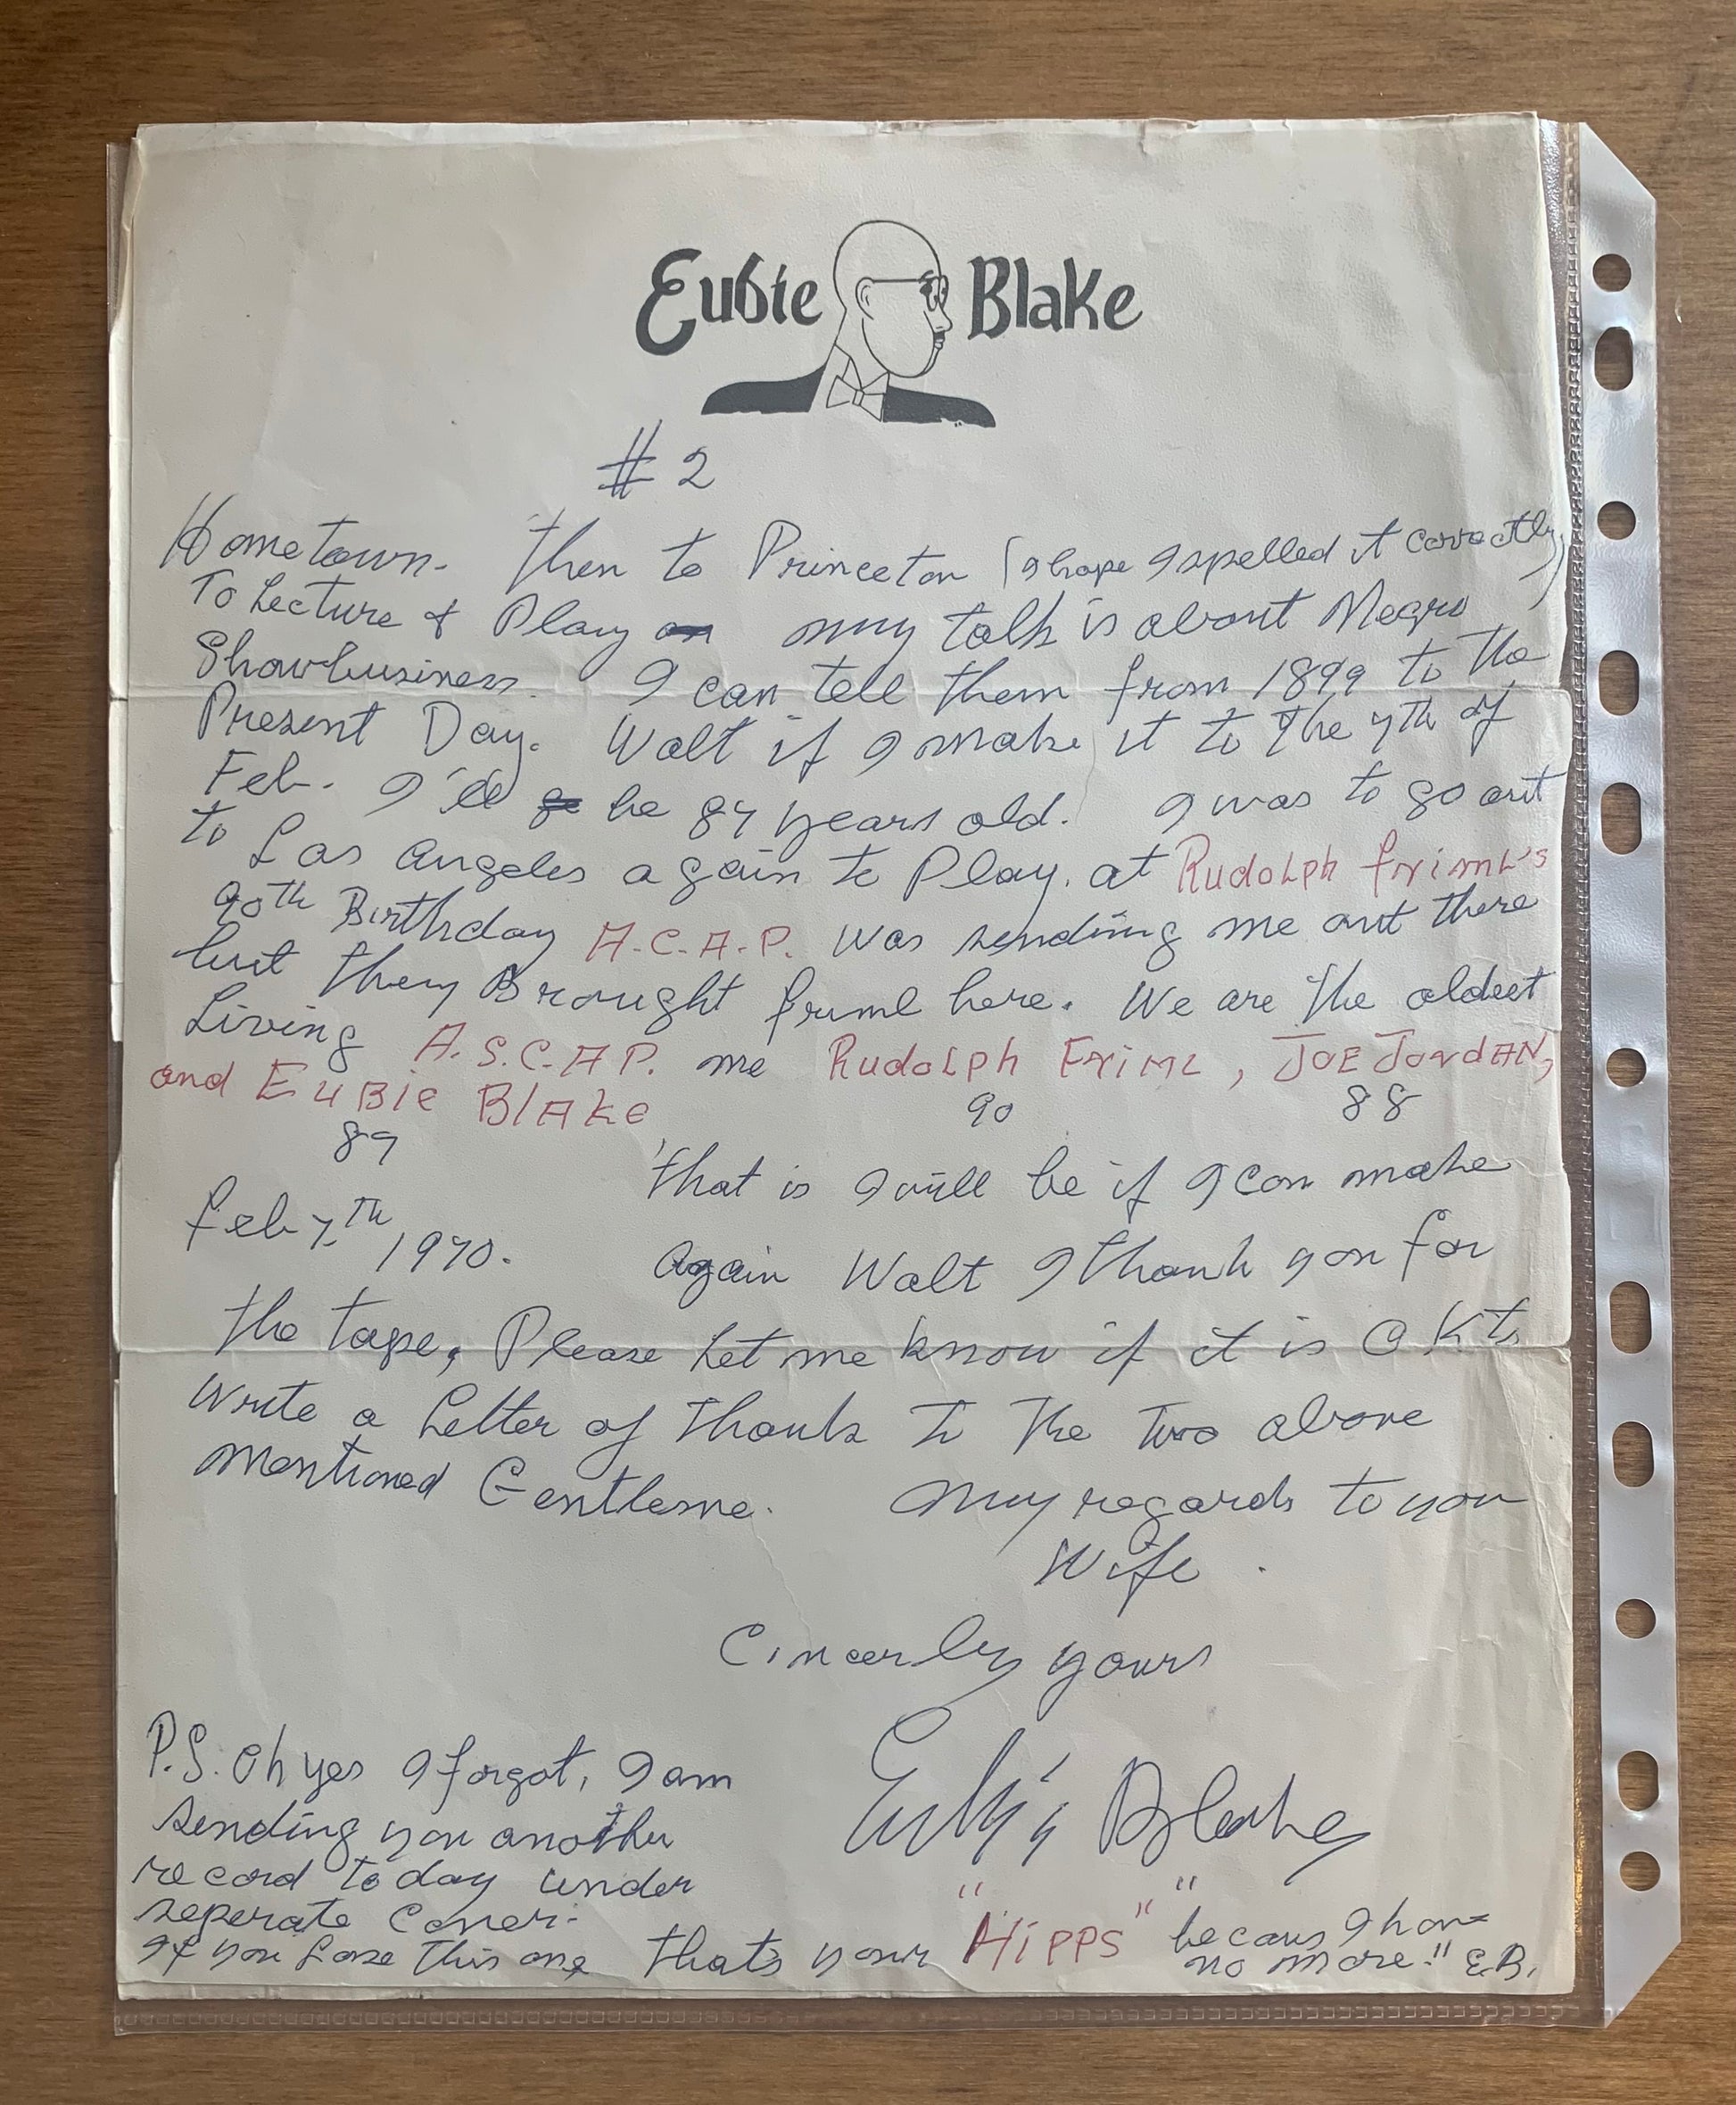 Eubie Blake
# 2
Hometown. Then to Princeton (I hope I spelled it corroctly)
To Lecture & Play my talk is about Negro
Showbusiness. I can tell them from 1899 to the
Present Day. Walt if I make it to the 7th of
Feb. I'll be 87 years old. I was to go out
to Los Angeles again to Play. at Rudolph friml's
90th Birthday A.C.A.P. was sending me out there
but they Brought friml here. We are the oldest
Living A.S.C.A.P. me Rudolph Friml, Joe Jordan,
and Eubie Blake 90 88
89 That is I will be if I can make
Feb 7th 1970. Again Walt I thank you for
the tape, Please Let me know if it is O K to
write a Letter of thanks to the two above
mentioned Gentleme. My regards to you
Wife.
Cincerly yours
Eubie Blake
P.S. Oh yes I forgot, I am
sending you another
record today under
seperate Cover.
If you Lose This one that's your "Hipps" " becaus I have
no more." E.B.